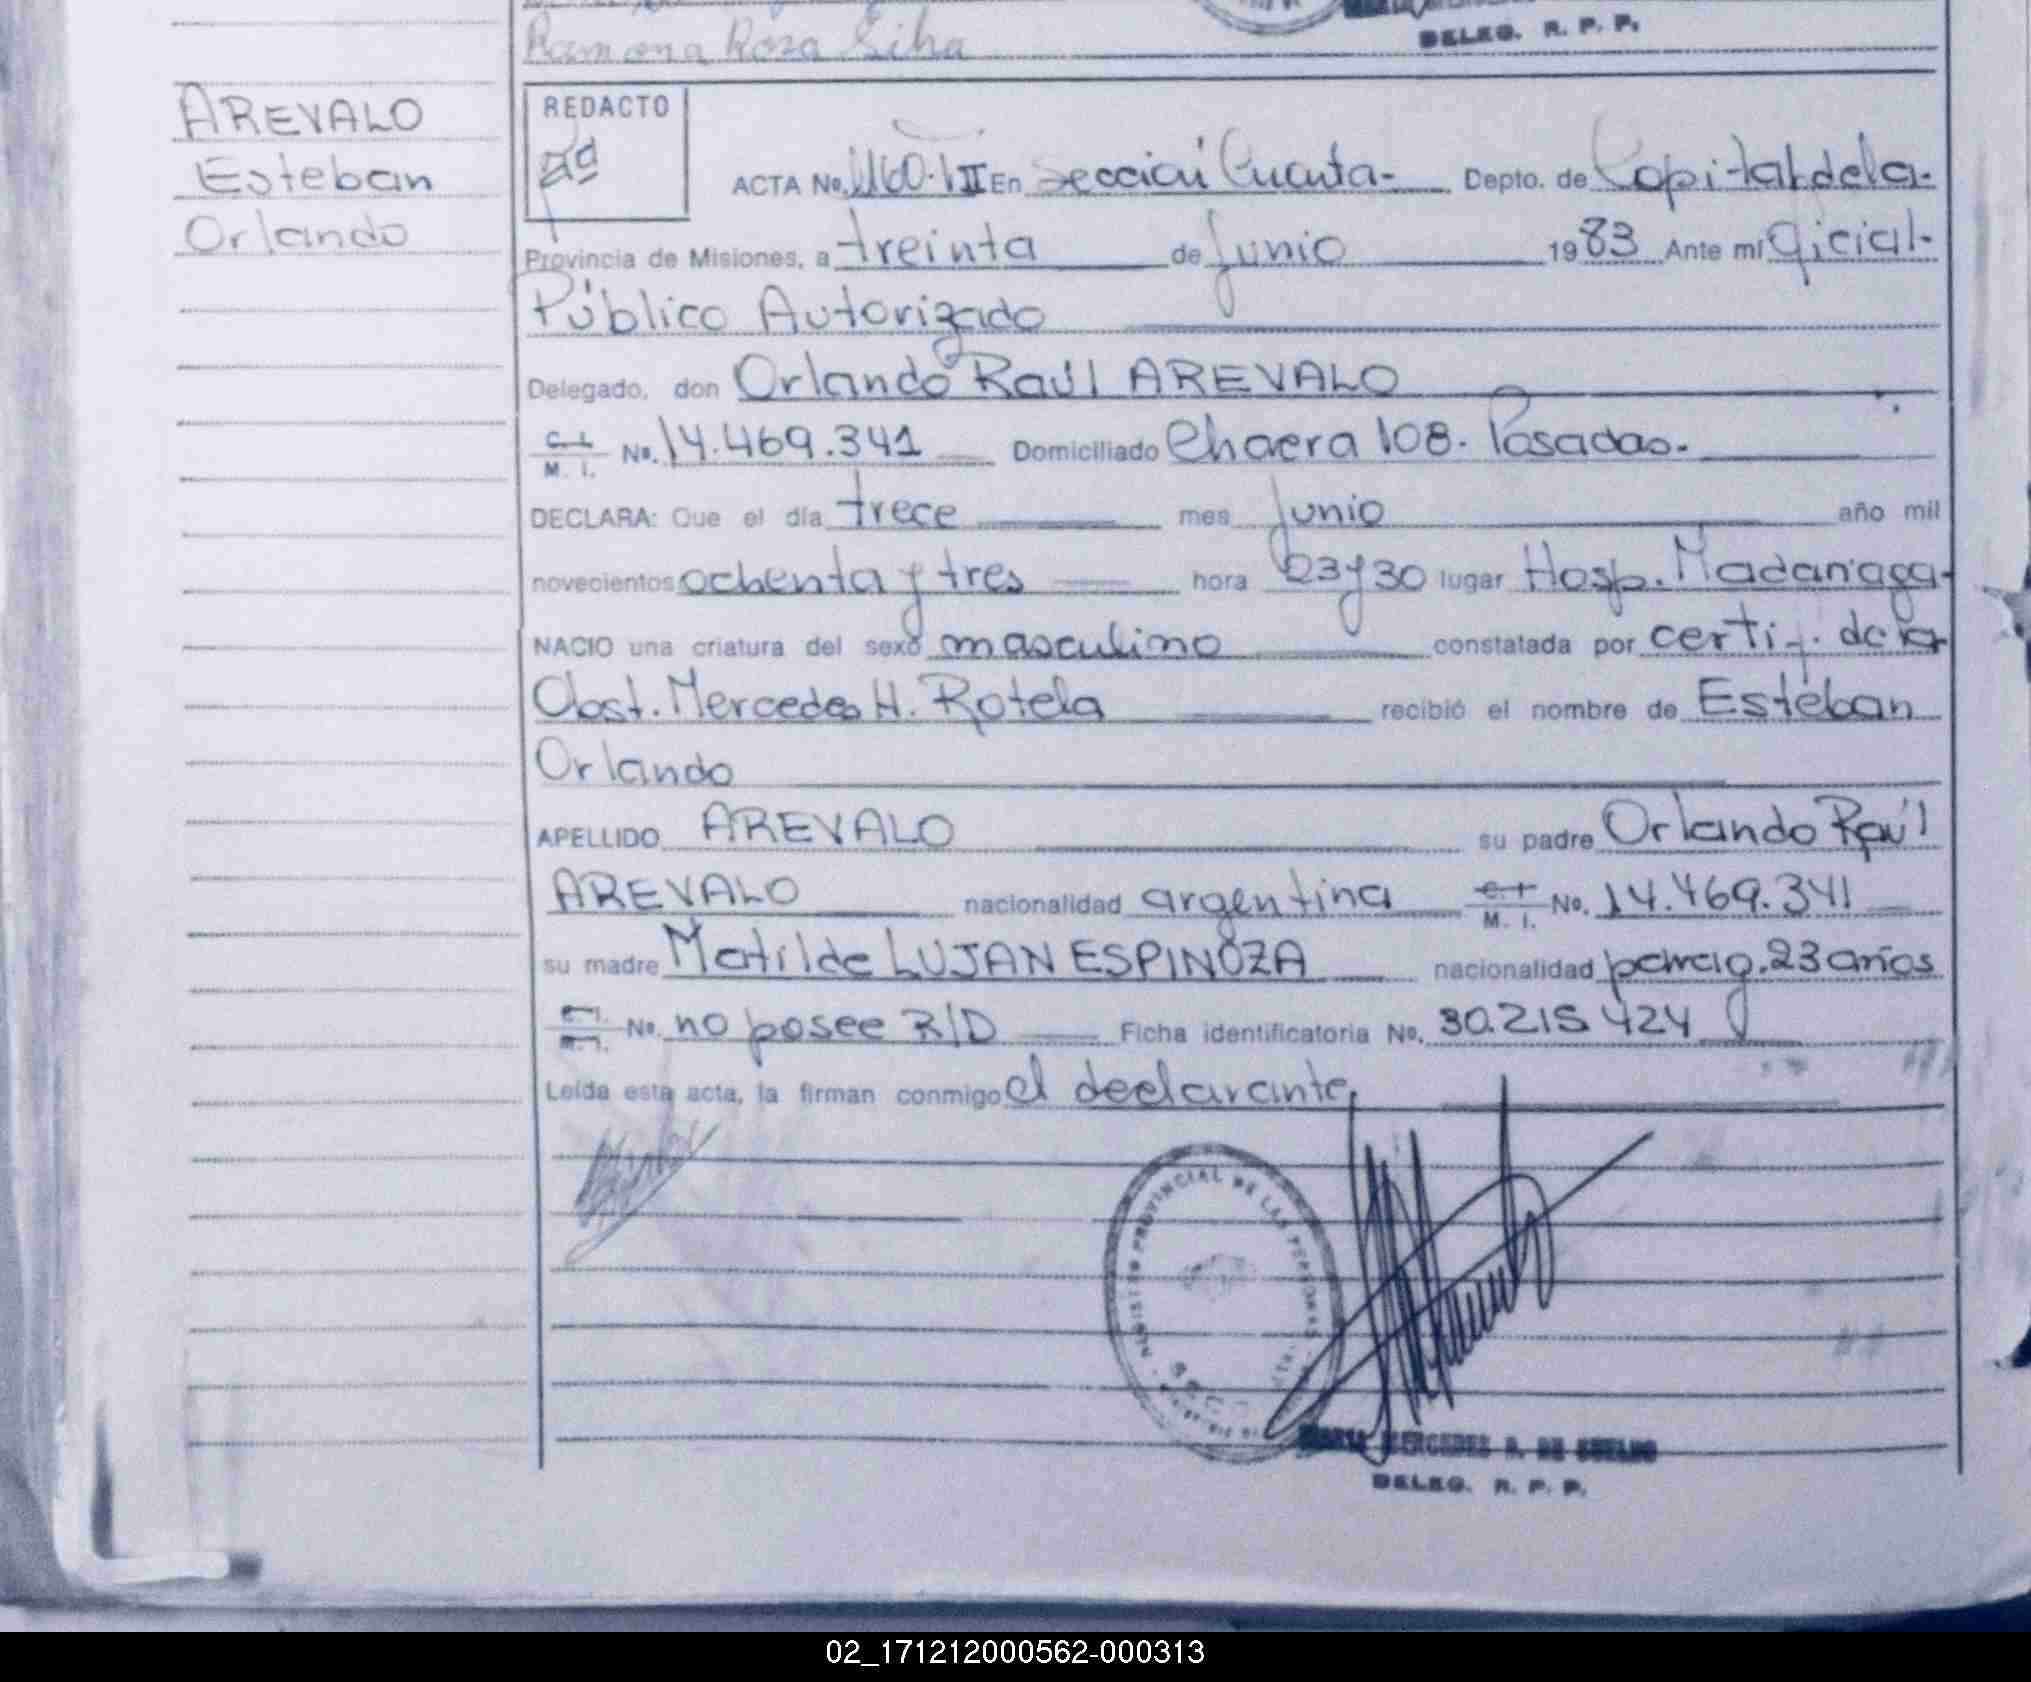 Ramona Rosa Silva
DELEG. R. P. P.
AREVALO
Esteban
Orlando
REDACTO
ACTA No. 1160. T II En Sección Cuarta. Depto. de Capital de la
Provincia de Misiones, a treinta de junio 1983 Ante mí Oficial
Público Autorizado
Delegado, don Orlando Raúl AREVALO
C. I. M. I. No. 14.469.341 Domiciliado Chacra 108. Posadas.
DECLARA: Que el día trece mes junio año mil
novecientos ochenta y tres hora 23 y 30 lugar Hosp. Madariaga
NACIO una criatura del sexo masculino constatada por certif. de la
Obst. Mercedes H. Rotela recibió el nombre de Esteban
Orlando
APELLIDO AREVALO su padre Orlando Raúl
AREVALO nacionalidad argentina C. I. M. I. No. 14.469.341
su madre Matilde LUJAN ESPINOZA nacionalidad parag. 23 años
C. I. M. I. No. no posee R/D Ficha identificatoria No. 30.215 424
Leída esta acta, la firman conmigo el declarante.
REGISTRO PROVINCIAL DE LAS PERSONAS
MERCEDES
DELEG. R. P. P.
02_171212000562-000313